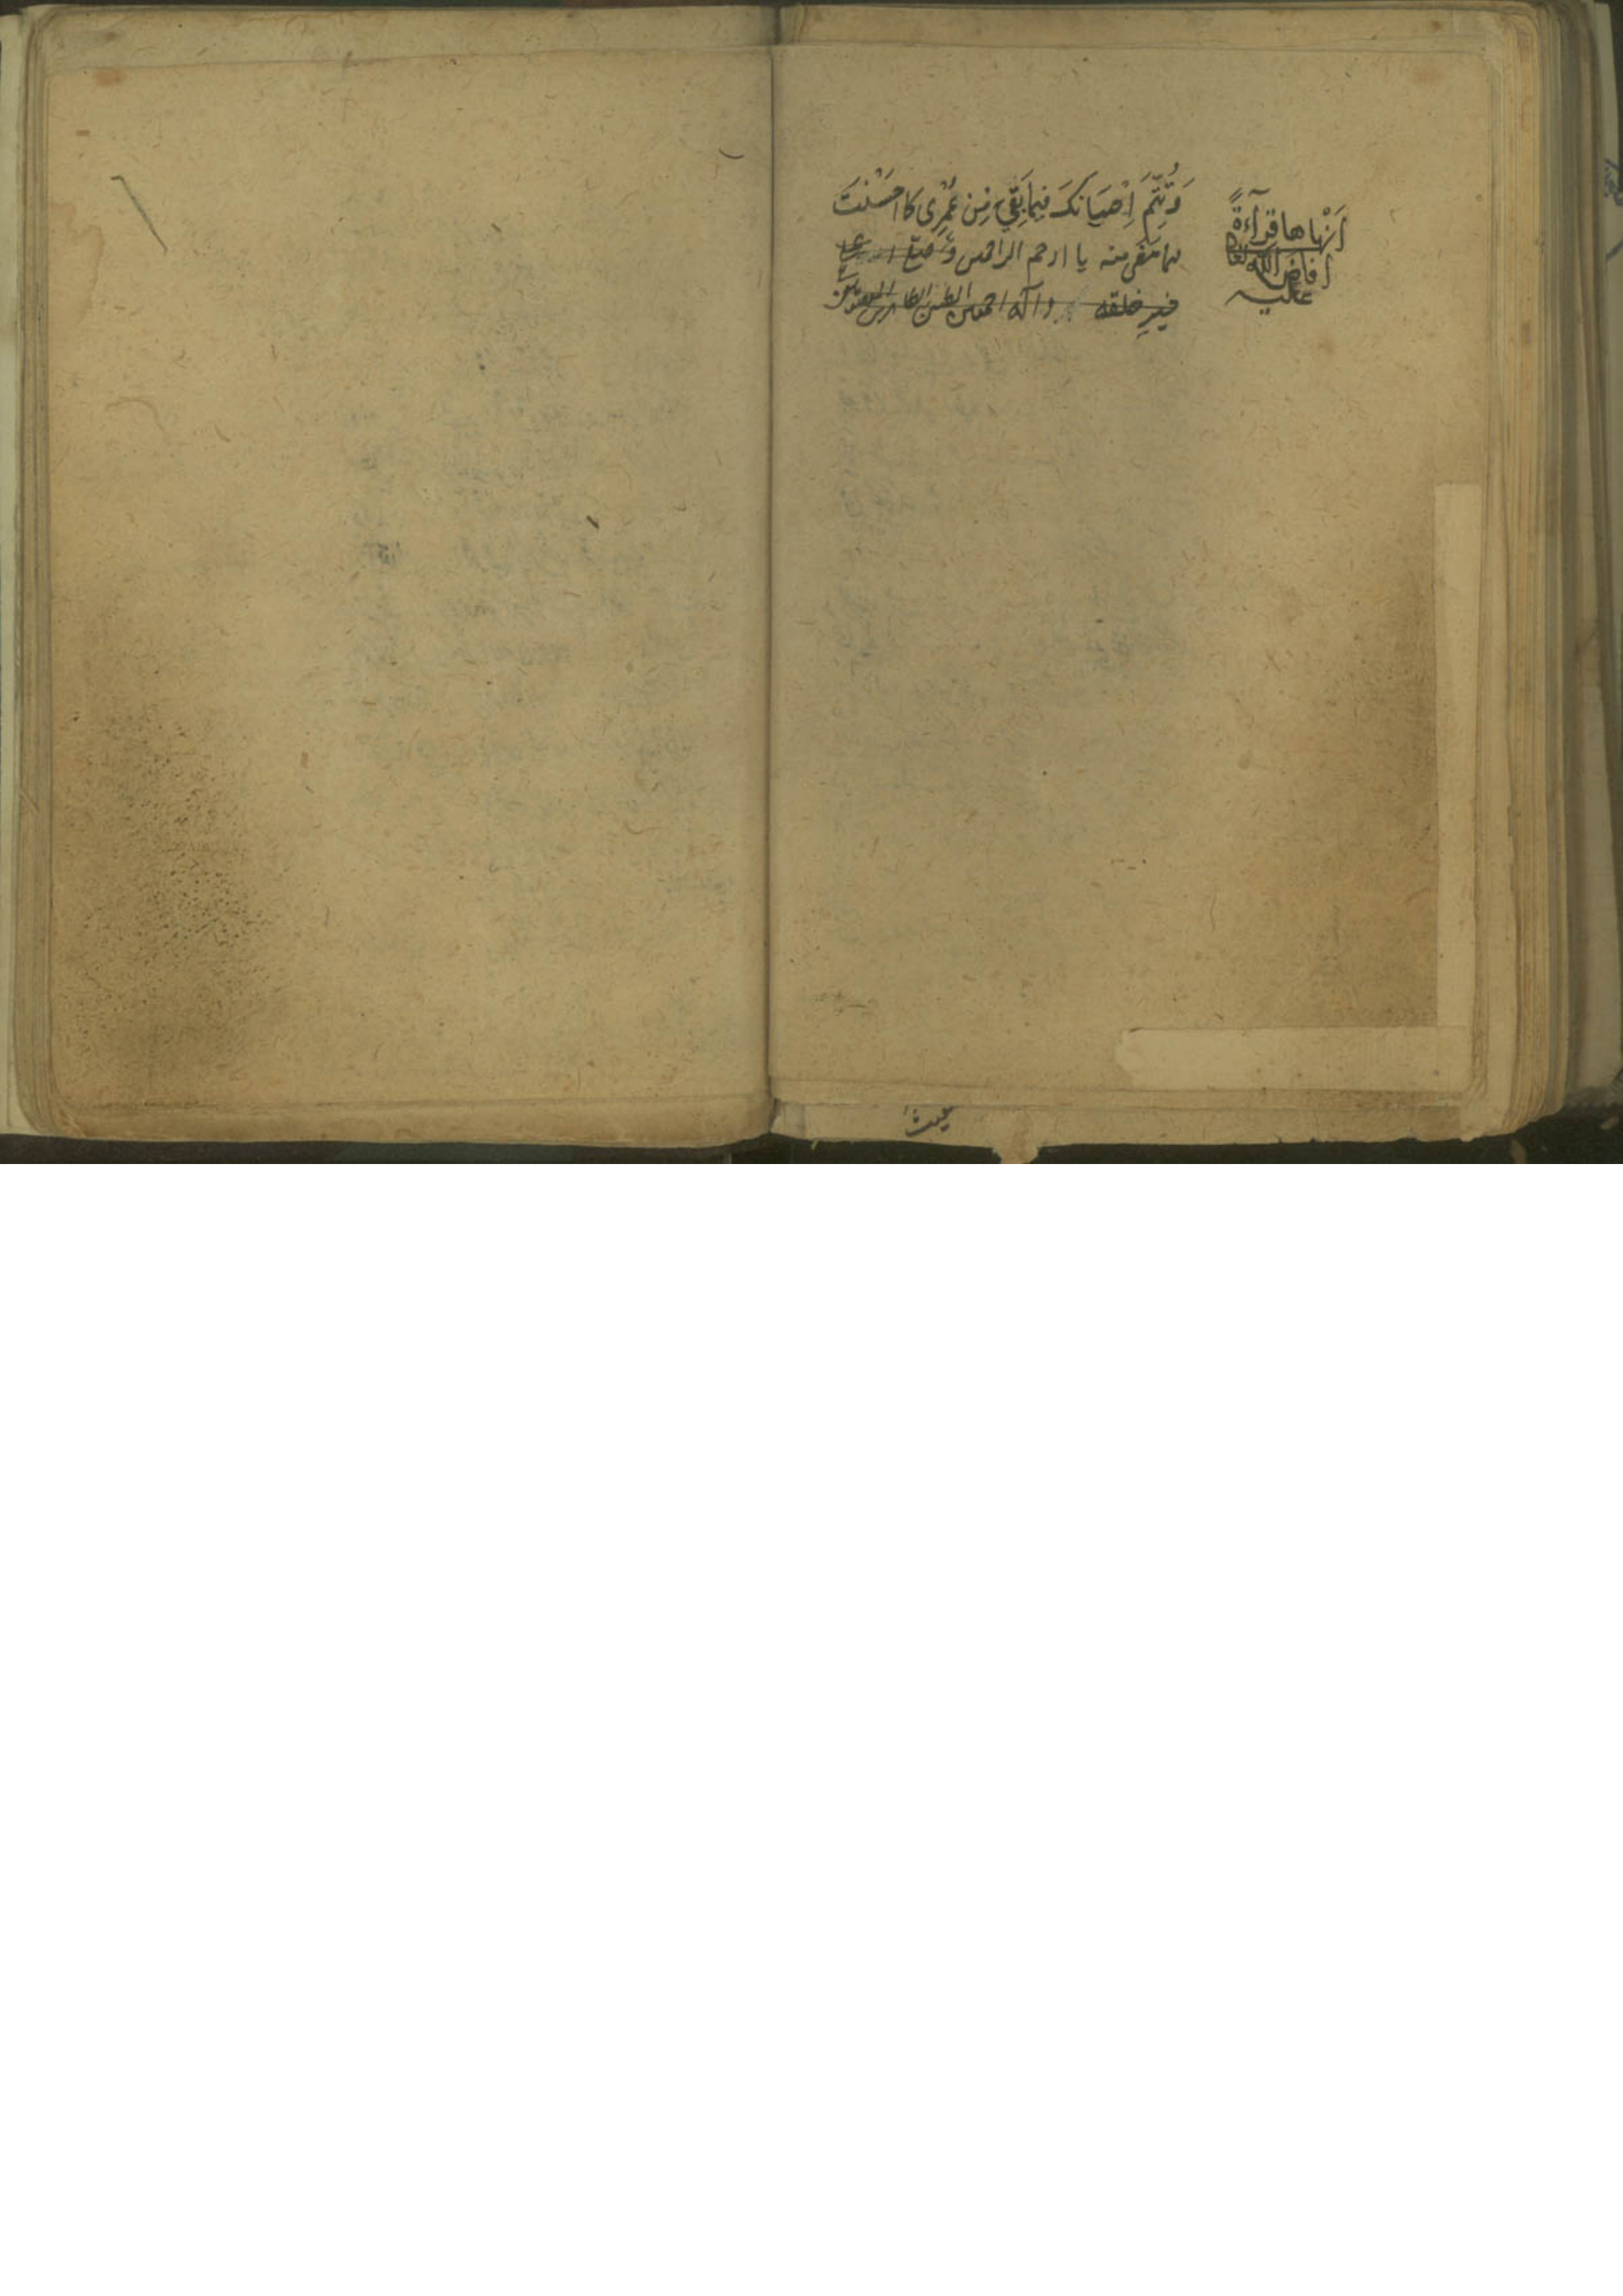 وَتُتِمَّ اِحْسَانَكَ فِيمَا بَقِيَ مِن عُمُرِى كما اَحْسَنْتَ
فيما مَضَى مِنه يا ارحم الراحمين وَصَلّى الله على
خير خلقه وآله اجمعين الطيبين الطاهرين المعصومين
اَنْهاها قِرآءةً
اَفاضَ الله تعالى
عليه